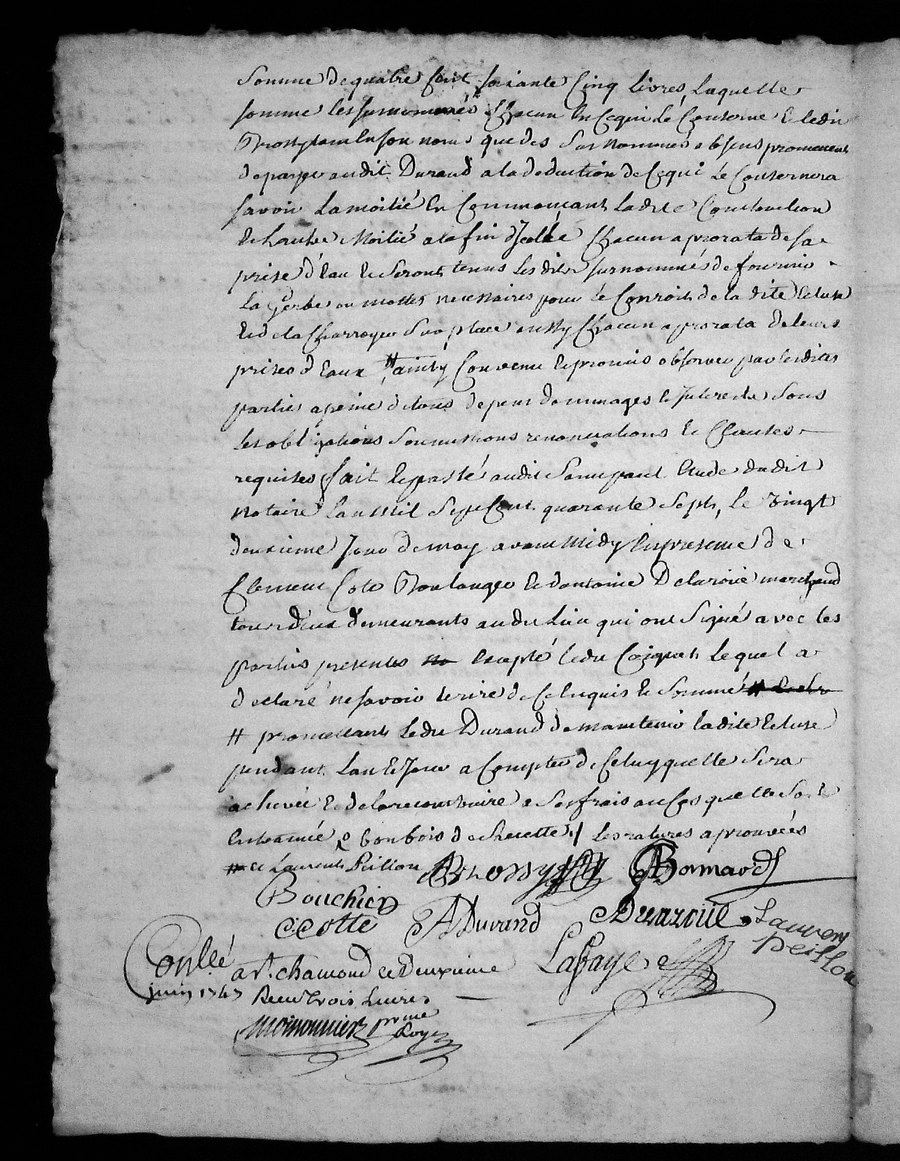 Somme de quatre Cent soixante Cinq livres, Laquelle
somme les surnommés Chacun En Cequi Lé Conserne Et ledit
tant En son nom que des Surnommes absens promettent
de payer audit Durand a la deduction de Cequi Le Consernera
savoir La moitié En Commancant Ladite Construction
Et Lautre Moitié a la fin dJcelle Chacun a prorata de sa
prise d'Eau Et Seront tenus Lesdits surnommés de fournir
La Gerbe ou mottes necessaires pour le Conroit de la dite Ecluse
Et de la Charroyer Sur place aussy Chacun a prorata de leurs
prises d'Eaux # ainsy Convenu Et promis observer par lesdites
parties a peine de tous depens dommages Et Interets Sous
les obligations Soumissions renonciations Et Clauses
requises fait Et passé audit Etude dudit
notaire Lan Mil Sept Cent quarante Sept, Le Vingt
deuxieme Jour de may avant Midy En presence de
Clement Cote Boulanger Et dantoine Delaroüe marchand
tous deux demeurants audit Lieu qui ont Signé avec les
parties presentes Excepté ledit Lequel a
declaré ne savoir Ecrire de Ce Enquis Et Sommé
# promettant Ledit Durand de maintenir ladite Ecluse
pendant Lan Et Jour a Compter de Celuy quelle Sera
achevée Et de la reconstruire a Ses frais au Cas quelle Soit
Entrainée bon bois les ratures aprouvées
Laurent Peillon Bonnard
Bouchier
CCotte ADurand Delaroüe Laurent
Peillon
Conllé a St. chamond Ce Deuxieme Lafaye
juin 1747 Receu trois Livres